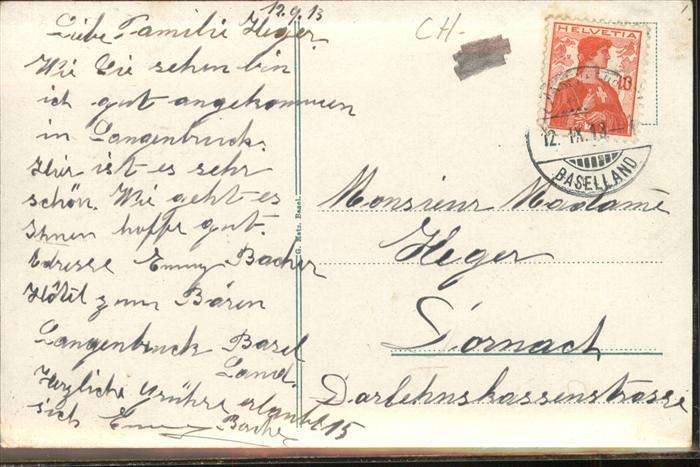 12.9.13
Liebe Familie Heger.
Wie Sie sehen bin
ich gut angekommen
in Langenbruck.
Hier ist es sehr
schön. Wie geht es
Ihnen hoffe gut.
Adresse Emmy Bacher
Hôtel zum Bären
Langenbruck Basel
Land.
Herzliche Grühse erlaubt
sich Emmy Bacher
CH-
HELVETIA
10
12. IX. 13
BASELLAND
G. Metz, Basel.
Monsieur Madame
Heger
Dornach
Darlehnskassenstrasse
15